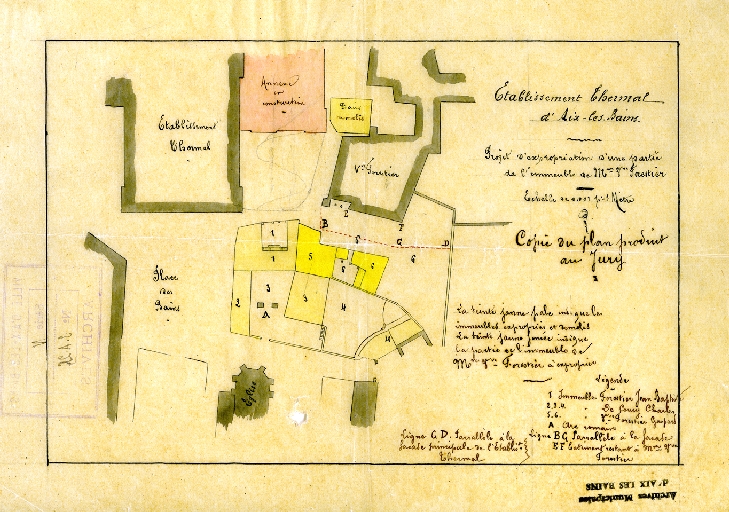 Etablissement Thermal
d'Aix-les-Bains.
Projet d'expropriation d'une partie
de l'immeuble de Mme Vve Forestier
Echelle
Copie du plan produit
au Jury
Annexe
en
construction
Bains
Etablissement
Thermal
Vve Forestier
Place
des
Bains
Eglise
B
E
F
C
G
D
1
1
2
3
A
3
4
5
5
6
6
La teinte jaune pale indique les
immeubles expropriés et démolis
La teinte jaune foncée indique
la partie de l'immeuble de
Mme Vve Forestier à exproprier
Légende
1 Immeuble Forestier Jean Bapt
2.3.4. " De Coucy Charles
5.6. " Vve Forestier Gaspard
A Arc romain
Ligne C.D. Parallèle à la
façade principale de l'Etablis
Thermal
Ligne BG Parallèle à la façade
EF batiment restant à Mme Vve
Forestier
ARCHIVES
Archives Municipales
d'AIX LES BAINS